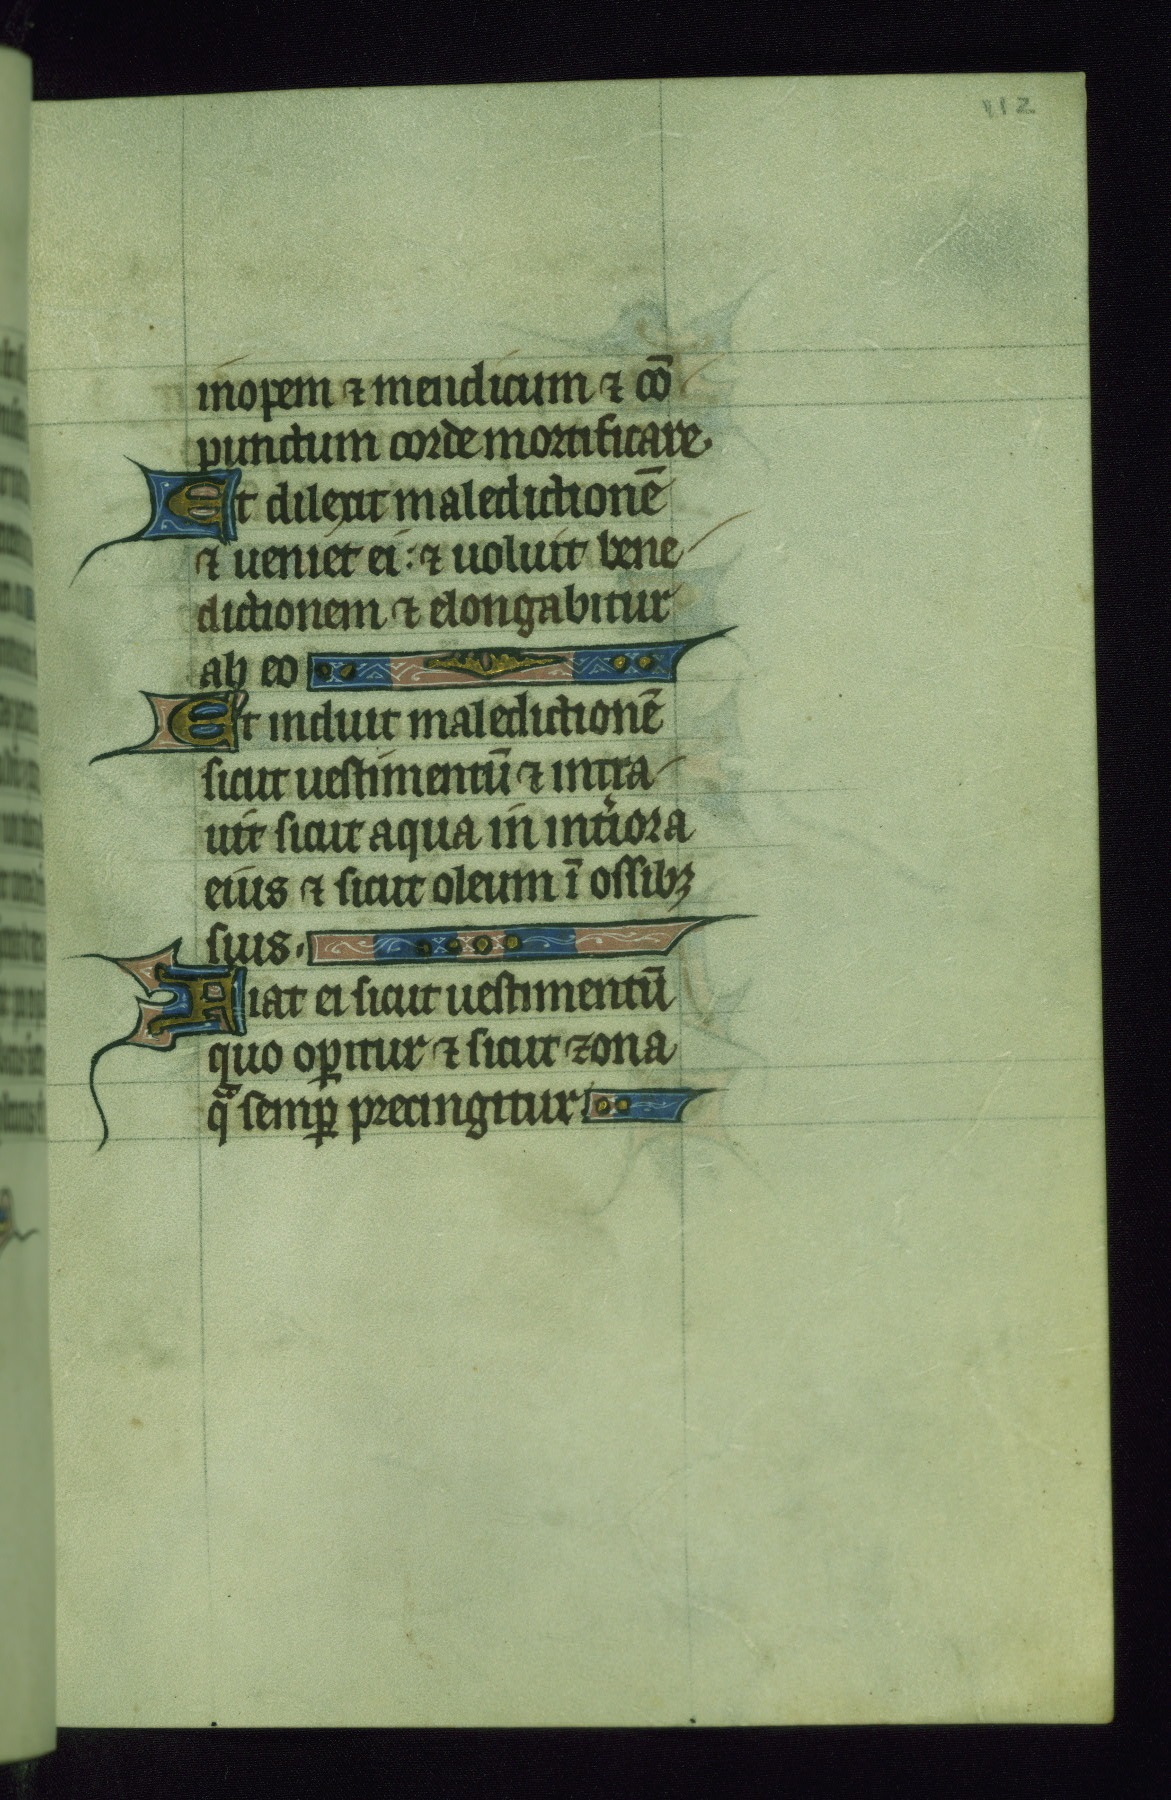 112
inopem ⁊ mendicum ⁊ cō
punctum corde mortificare.
Et dilexit maledictionē
⁊ ueniet ei: ⁊ uoluit bene
dictionem ⁊ elongabitur
ab eo
Et induit maledictionē
sicut uestimentū ⁊ intra
uit sicut aqua in int̾iora
eius ⁊ sicut oleum ī ossibꝫ
suis.
Fiat ei sicut uestimentū
quo oꝑitur ⁊ sicut zona
qᵃ semꝑ precingitur